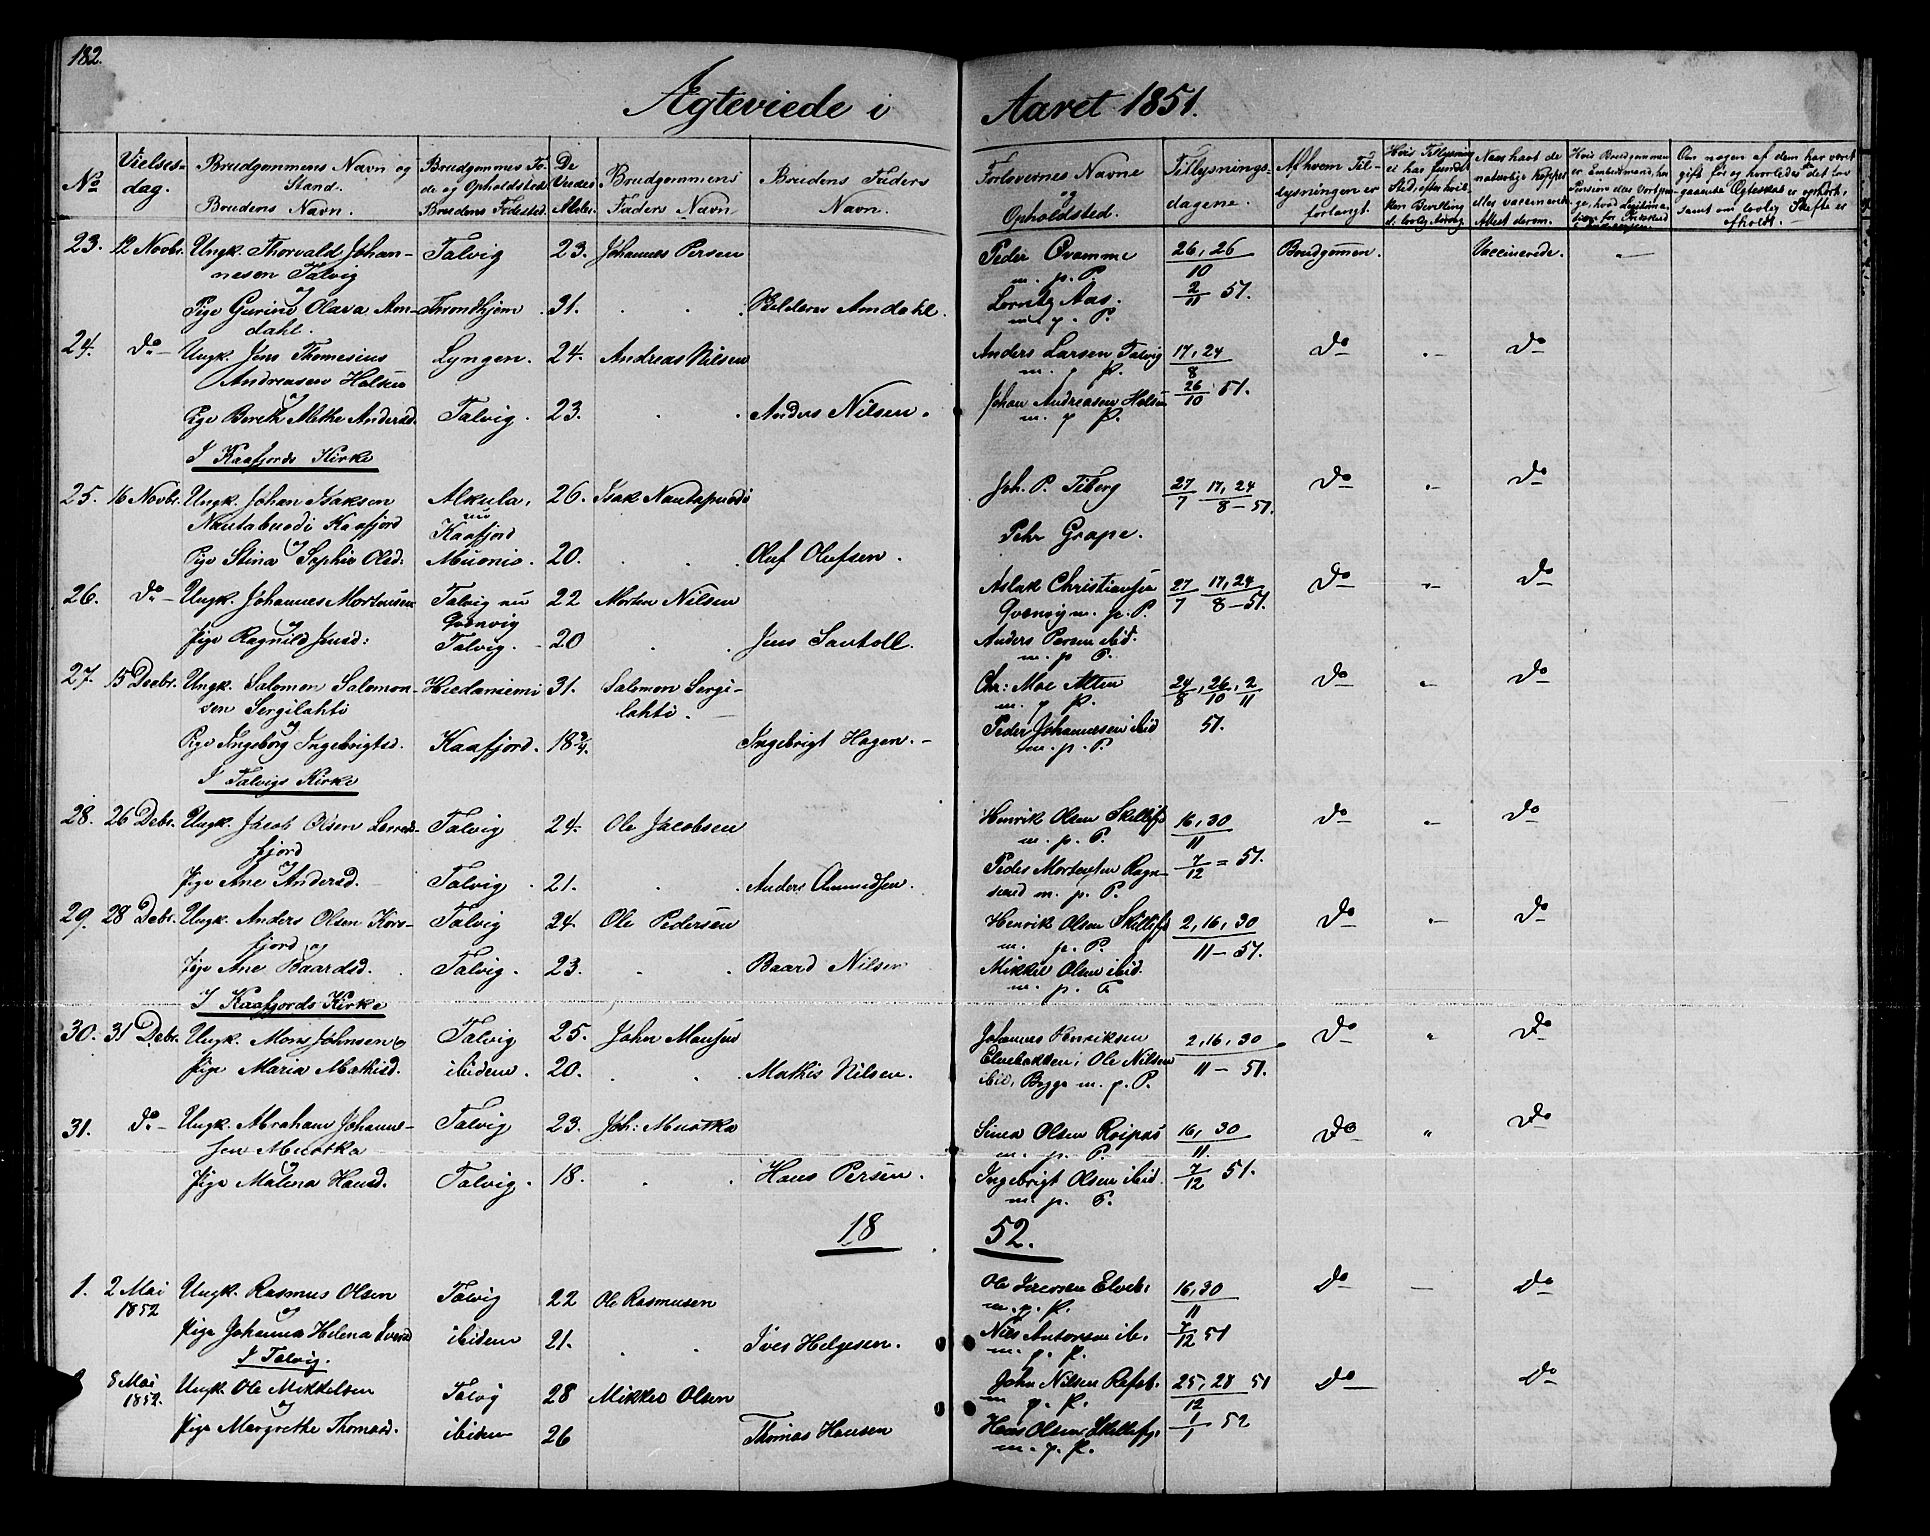 182.
Ægteviede i Aaret 1851.
No
Vielses-
dag.
Brudgommens Navn og
Stand.
Brudens Navn.
Brudgommes Fø-
de og Opholdsted
Brudens Fødested.
De
Viedes
Alder.
Brudgommens
Faders Navn
Brudens Faders
Navn.
Forlovernes Navne
og
Opholdsted.
Tillysnings-
dagene.
Af hvem Til-
lysningen er
forlangt.
Hvis Tillysning
ei har fundet
Sted, efter hvil-
ken Bevilling
Naar havt de
naturlige Kopper
eller vaccinerede
Attest derom.
Hvis Brudgommen
er Embedsmand, har
Om nogen af dem har været
gift før og hvorledes det for
gaaende Egteskab er ophørt,
samt om lovlig Skifte er
afholdt.
23. 12 Novbr. Ungk. Thorvald Johan- Talvig 23. Johannes Persen Peder Qvamme 26, 26 Brudgommen. Vaccinerede. "
nesen Talvig m. p. P. 10
og
Pige Gurine Olava Am- Throndhjem. 31. Pelderes Amdahl. Lornitz Aas. 2/11 51.
dahl. m. p. P.
24. do Ungk. Jens Thomesius Lyngen. 24. Andreas Nilsen Anders Larsen Talvig 17, 24 do " do
Andreasen Halsen m. p. P. 8
og
Pige Bereth Mette Andersd. Talvig. 23. Anders Nilsen. Johan Andreasen Halsen 26/10 51.
m. p. P.
I Kaafjords Kirke
25. 16 Novbr. Ungk. Johan Isaksen Alkula, 26. Isak Nautapuodi Joh. P. Tiberg 27/7 17, 24 do " do
Nautabuodi Kaafjord nu 8 – 51.
og Kaafjord Pehr Grape.
Pige Stina Sophie Olsd. Muonio. 20. Oluf Olufsen.
26. do Ungk. Johannes Mortensen Talvig nu 22 Morten Nilsen Aslak Christiansen 27/7 17, 24 do " do
og Qvenvig Qvenvig m. p. P. 8 – 51.
Pige Ragnild Jensd: Talvig. 20 Jens Savtoll. Anders Persen ibid.
m. p P.
27. 15 Decbr. Ungk. Salomon Salomon- Hiedaniemi 31. Salomon Sergi- Chr: Moe Alten 24/8, 26/10, 2/11 do " do
sen Sergilahti lahti. m. p. P.
og Peder Johannessen ibid 51.
Pige Ingeborg Ingebrigtsd. Kaafjord. 18¾. Ingebrigt Hagen. m. p. P
I Talvigs Kirke
28. 26 Debr. Ungk. Jacob Olsen Talvig 24. Ole Jacobsen Henrik Olsen Skillefd 16, 30 do " do
fjord m. p. P. 11
og Peder Mortensen Rogn- 7/12 = 51.
Pige Ane Andersd. Talvig 21. Anders Amundsen. sund m. p. P.
29. 28 Debr. Ungk. Anders Olsen Kors- Talvig 24. Ole Pedersen Henrik Olsen Skillefd 2, 16, 30 do " do
fjord og m. p. P. 11 – 51.
Pige Ane Baardsd. Talvig. 23. Baard Nilsen Mikkel Olsen ibid.
m. p. P
I Kaafjords Kirke
30. 31 Debr. Ungk. Mons Johnsen og Talvig 25. John Monsen Johannes Henriksen 2, 16, 30 do " do
Pige Maria Mathisd. ibidem. 20. Mathis Nilsen. Elvebakken, Ole Nilsen 11 – 51.
ibid, Begge m. p. P.
31. do Ungk. Abraham Johannes- Talvig 23. Joh: Muotka Simen Olsen Roipas 16, 30 do " do
sen Muotka m. p. P. 11
og
Pige Malena Hansd. Talvig. 18. Hans Persen. Ingebrigt Olsen ibid 7/12 51.
m. p. P.
18 52.
1. 2 Mai Ungk. Rasmus Olsen Talvig 22 Ole Rasmusen Ole Elveb. 16, 30 do — do
1852 og m. p. P. 11
Pige Johanna Helena Iversd ibidem 21. Iver Helgesen. Nils Antonsen ib. 7/12 51
I Talvig. m. p. P.
8 Mai Ungk. Ole Mikkelsen Talvig 28 Mikkel Olsen John Nilsen Rafsb. 25, 28 51 do do
1852. og m p. P. 12
Pige Margrethe Thomasd. ibidem 26 Thomas Hansen Hans Olsen Skillefj. 1/1 52
m. p. P.